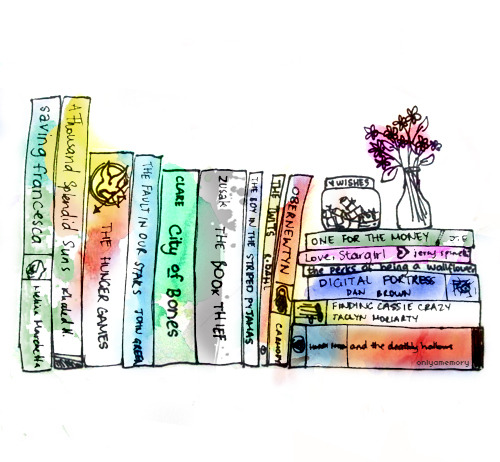 saving francesca
Melina Marchetta
A Thousand Splendid Suns Khaled H.
THE HUNGER GAMES
THE FAULT IN OUR STARS JOHN GREEN
CLARE City of Bones
ZUSAK THE BOOK THIEF
THE BOY IN THE STRIPED PYJAMAS
THE TWITS R.DAHL
OBERNEWTYN CARMODY
♥WISHES
ONE FOR THE MONEY J.E
Love, Stargirl jerry spinelli
the perks of being a wallflower
DIGITAL FORTRESS
DAN BROWN
FINDING CASSIE CRAZY
JACLYN MORIARTY
and the deathly hallows
onlyamemory